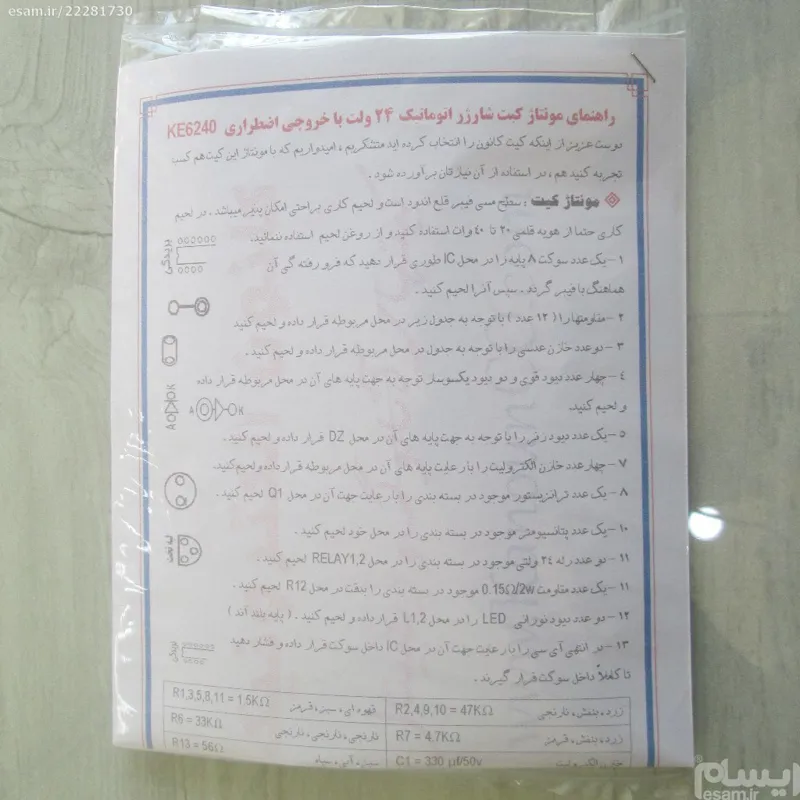 esam.ir/22281730
راهنمای مونتاژ کیت شارژر اتوماتیک ۲۴ ولت با خروجی اضطراری KE6240
دوست عزیز از اینکه کیت کانون را انتخاب کرده اید متشکریم، امیدواریم که با مونتاژ این کیت هم کسب
تجربه کنید هم، در استفاده از آن نیازتان برآورده شود.
مونتاژ کیت: سطح مسی فیبر قلع اندود است و لحیم کاری براحتی امکان پذیر میباشد. در لحیم
کاری حتما از هویه قلمی ۲۰ تا ۴۰ وات استفاده کنید و از روغن لحیم استفاده ننمائید.
۱-یک عدد سوکت ۸ پایه را در محل IC طوری قرار دهید که فرو رفته گی آن
هماهنگ با فیبر گردد. سپس آنرا لحیم کنید.
بریدگی
۲-مقاومتهارا (۱۲ عدد) با توجه به جدول زیر در محل مربوطه قرار داده و لحیم کنید
۳-دو عدد خازن عدسی را با توجه به جدول در محل مربوطه قرار داده و لحیم کنید.
۴-چهار عدد دیود قوی و دو دیود یکسوساز توجه به جهت پایه های آن در محل مربوطه قرار داده
و لحیم کنید.
A K
A K
۵-یک عدد دیود زنر را با توجه به جهت پایه های آن در محل DZ قرار داده و لحیم کنید.
۷-چهار عدد خازن الکترولیت را با رعایت پایه های آن در محل مربوطه قرار داده و لحیم کنید.
۸-یک عدد ترانزیستور موجود در بسته بندی را با رعایت جهت آن در محل Q1 لحیم کنید.
۱۰-یک عدد پتانسیومتر موجود در بسته بندی را در محل خود لحیم کنید.
۱۱-دو عدد رله ۲۴ ولتی موجود در بسته بندی را در محل RELAY1,2 لحیم کنید.
۱۱-یک عدد مقاومت 0.15Ω/2w موجود در بسته بندی را بدقت در محل R12 لحیم کنید.
۱۲-دو عدد دیود نورانی LED را در محل L1,2 قرار داده و لحیم کنید. (پایه بلند آند)
۱۳-در انتهی آی سی را با رعایت جهت آن در محل IC داخل سوکت قرار داده و فشار دهید
تا کاملاً داخل سوکت قرار گیرند.
زرد، بنفش، نارنجی R2,4,9,10 = 47KΩ قهوه ای، سبز، قرمز R1,3,5,8,11 = 1.5KΩ
زرد، بنفش، قرمز R7 = 4.7KΩ نارنجی، نارنجی، نارنجی R6 = 33KΩ
خازن الکترولیت C1 = 330 µf/50v سبز، آبی، سیاه R13 = 56Ω
ایسام
esam.ir